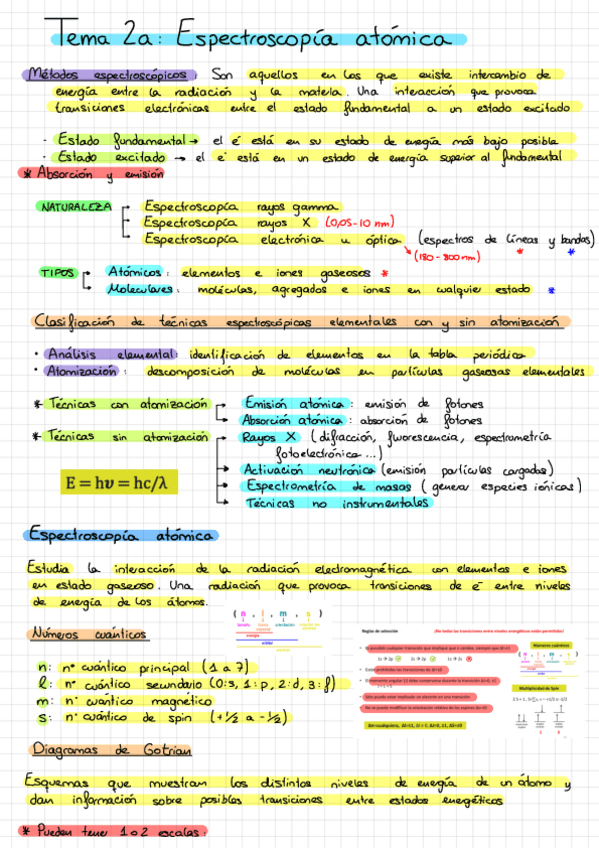 Tema 2a: Espectroscopía atómica
Métodos espectroscópicos: Son aquellos en los que existe intercambio de
energía entre la radiación y la materia. Una interacción que provoca
transiciones electrónicas entre el estado fundamental a un estado excitado
- Estado fundamental → el é está en su estado de energía más bajo posible
- Estado excitado → el e⁻ está en un estado de energía superior al fundamental
* Absorción y emisión
NATURALEZA
Espectroscopía rayos gamma
Espectroscopía rayos X (0,05-10 nm)
Espectroscopía electrónica u óptica (espectros de líneas y bandas)
(180-800nm) * *
TIPOS
Atómicos: elementos e iones gaseosos *
Moleculares: moléculas, agregados e iones en cualquier estado *
Clasificación de técnicas espectroscópicas elementales con y sin atomización
• Análisis elemental: identificación de elementos en la tabla periódica
• Atomización: descomposición de moléculas en partículas gaseosas elementales
* Técnicas con atomización
Emisión atómica: emisión de fotones
Absorción atómica: absorción de fotones
* Técnicas sin atomización
Rayos X (difracción, fluorescencia, espectrometría
fotoelectrónica...)
Activación neutrónica (emisión partículas cargadas)
Espectrometría de masas (generar especies iónicas)
Técnicas no instrumentales
E = hυ = hc/λ
Espectroscopía atómica
Estudia la interacción de la radiación electromagnética con elementos e iones
en estado gaseoso. Una radiación que provoca transiciones de é entre niveles
de energía de los átomos.
(n, l, m, s)
energía
orbital
Números cuánticos
n: nº cuántico principal (1 a 7)
l: nº cuántico secundario (0:s, 1:p, 2:d, 3:f)
m: nº cuántico magnético
s: nº cuántico de spin (+½ a -½)
Reglas de selección
¡No todas las transiciones entre niveles energéticos están permitidas!
Números cuánticos
Multiplicidad de Spin
Diagramas de Gotrian
Esquemas que muestran los distintos niveles de energía de un átomo y
dan información sobre posibles transiciones entre estados energéticos
* Pueden tener 1 o 2 escalas: